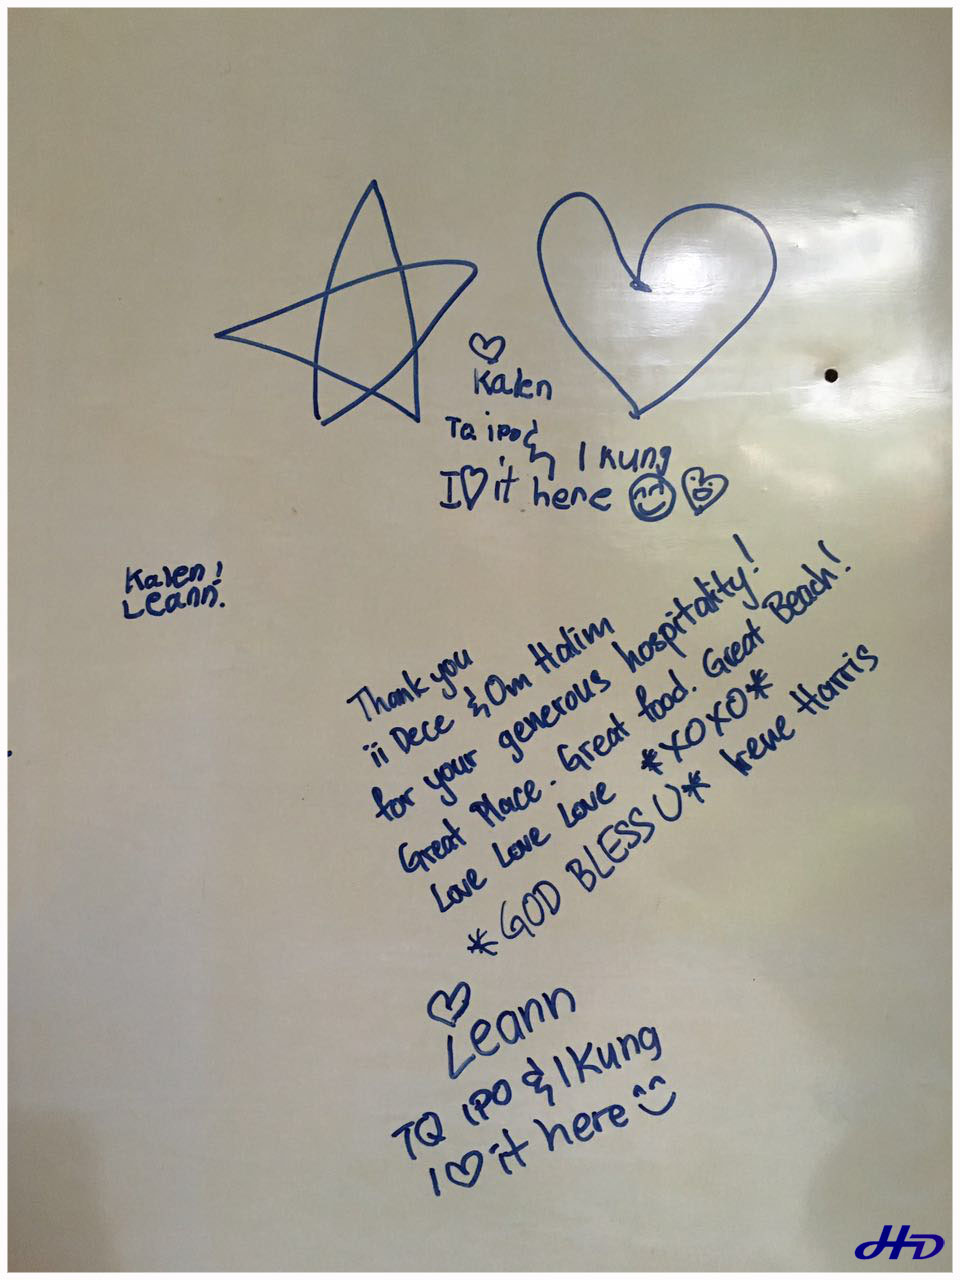 Kalen
TQ ipo &
I Kung
I ♡ it here
Kalen!
Leann.
Thank you
ii Dece & Om Halim
for your generous hospitality!
Great Place. Great food. Great Beach!
Love Love Love *XOXO*
*GOD BLESS U* Irene Harris
Leann
TQ IPO & I Kung
I ♡ it here
HD